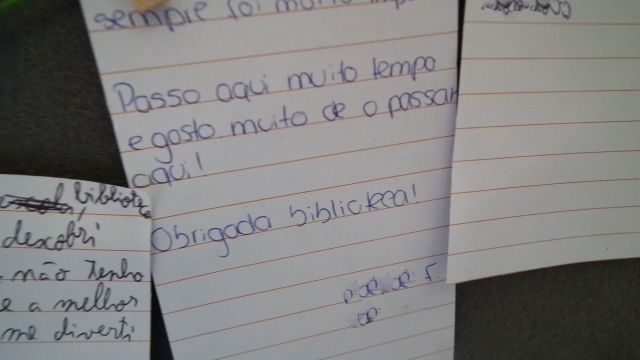 sempre foi muito
Passo aqui muito tempo
e gosto muito de o passar
aqui!
Obrigada biblioteca!
bibliote
descobri
não tenho
e a melhor
me diverti